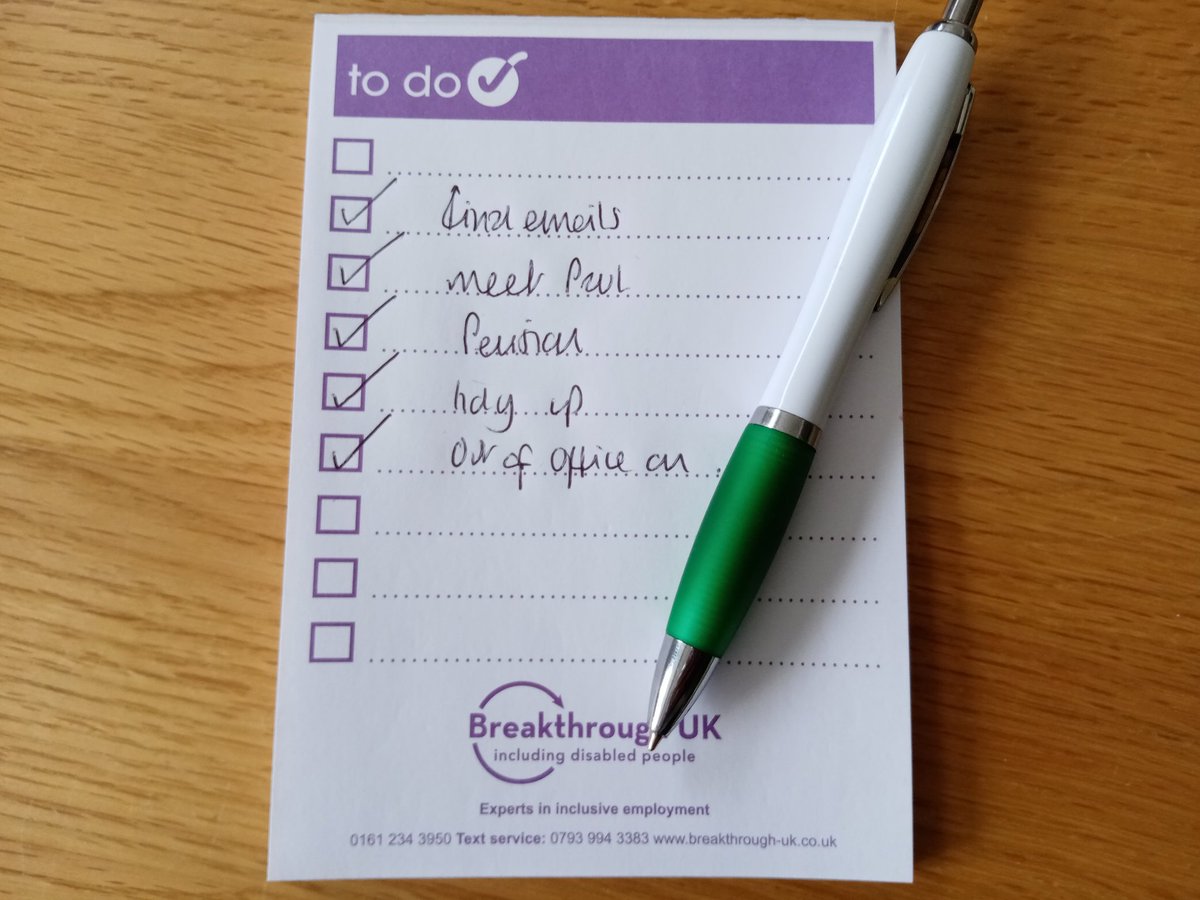 to do
final emails
meet Paul
Pension
tidy up
Out of office on
Breakthrough UK
including disabled people
Experts in inclusive employment
0161 234 3950 Text service: 0793 994 3383 www.breakthrough-uk.co.uk